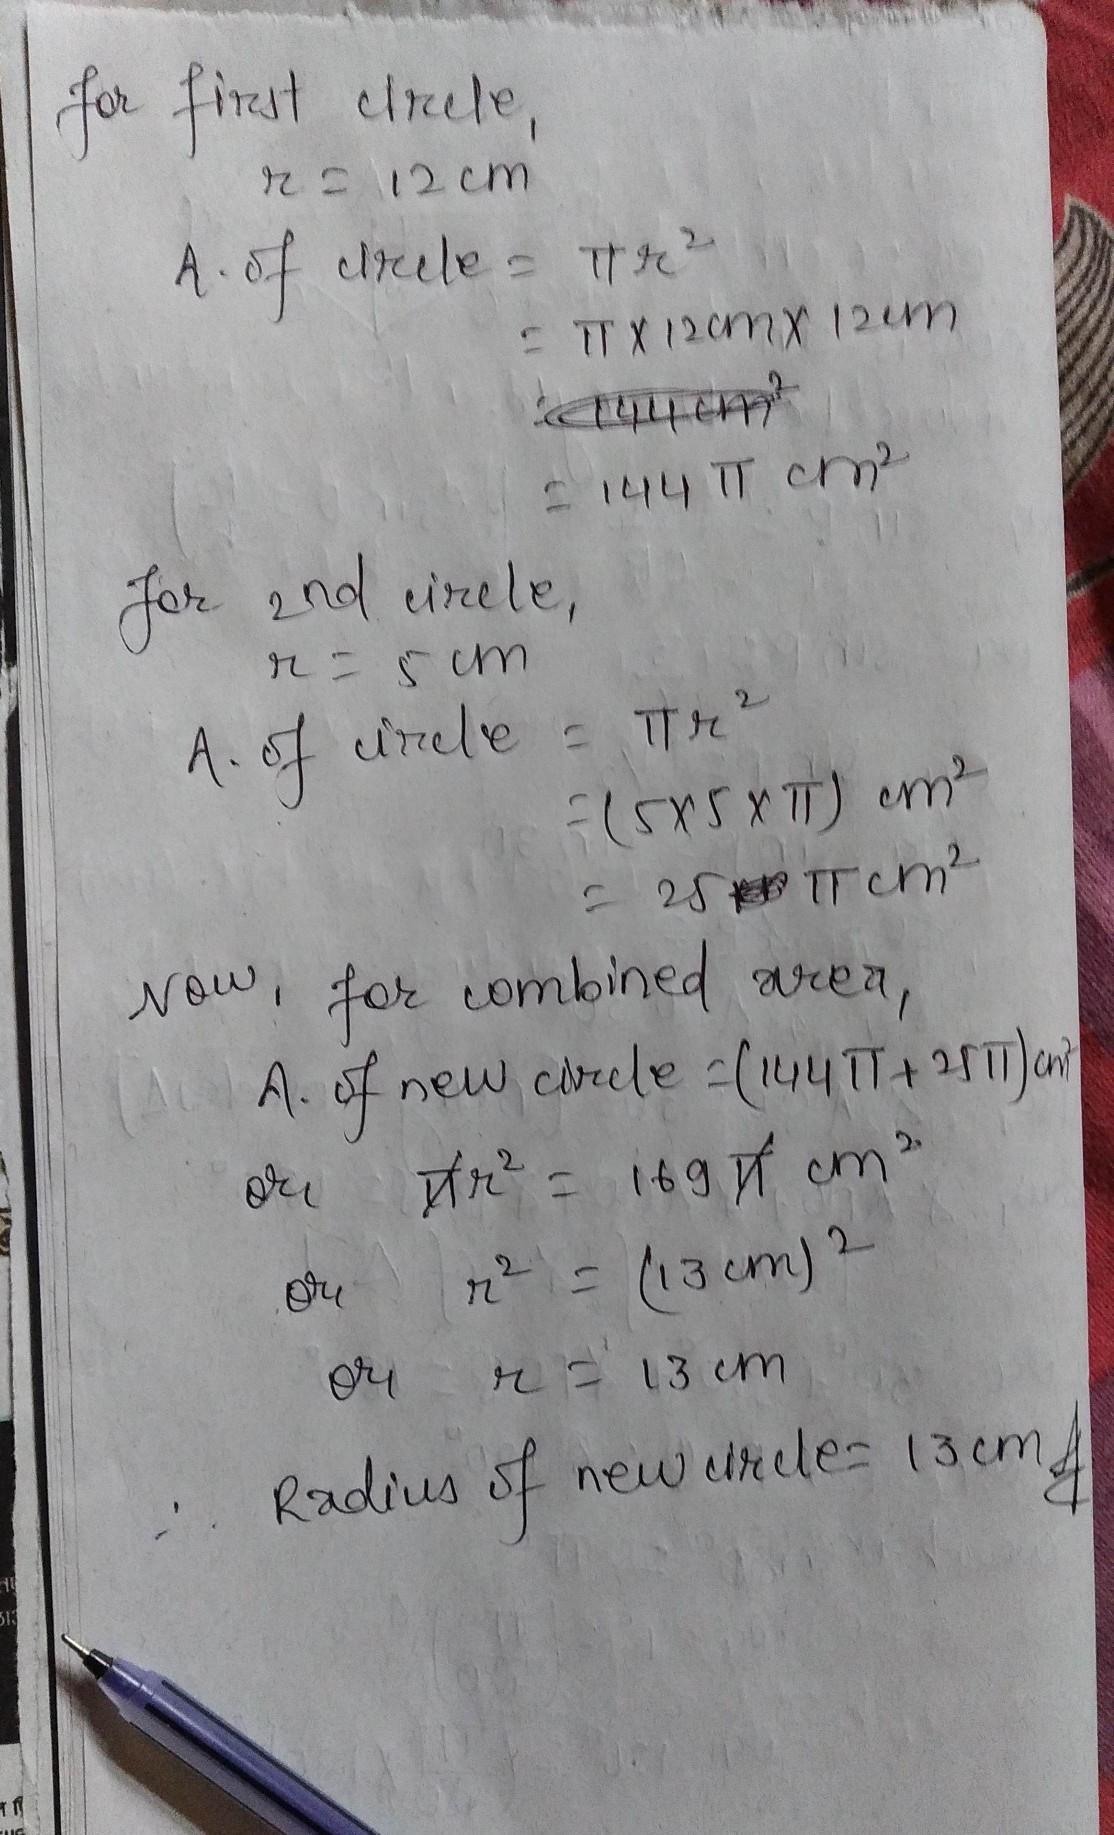 for first circle,
r = 12 cm
A. of circle = πr²
= π × 12cm × 12cm
= 144 cm²
= 144 π cm²
for 2nd circle,
r = 5 cm
A. of circle = πr²
= (5×5×π) cm²
= 25 π cm²
Now, for combined area,
A. of new circle = (144π + 25π) cm²
or πr² = 169π cm²
or r² = (13 cm)²
or r = 13 cm
∴ Radius of new circle = 13 cm